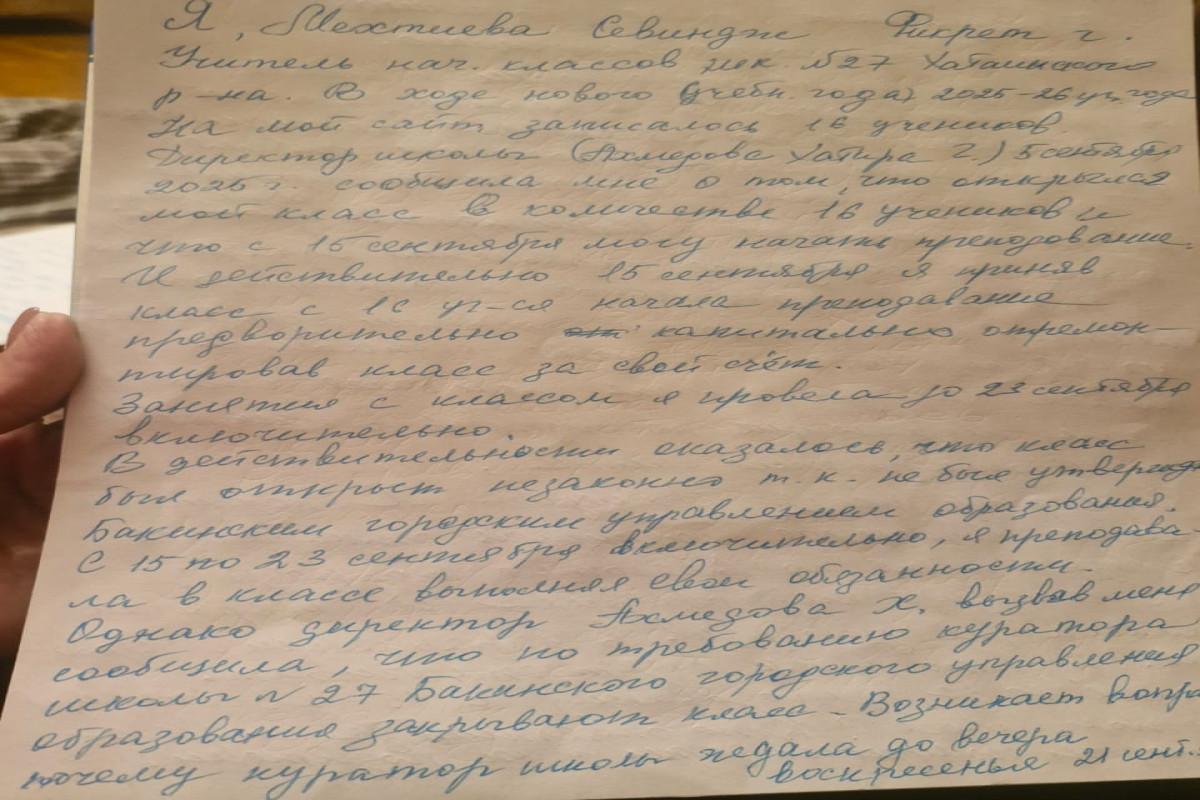 Я, Мехтиева Севиндж Фикрет г.
Учитель нач. классов шк. №27 Хатаинского
р-на. В ходе нового (учебн. года) 2025-26 уч. года
На мой сайт записалось 16 учеников.
Директор школы (Ахмедова Хатира Г.) 5 сентября
2025 г. сообщила мне о том, что открылся
мой класс в количестве 16 учеников и
что с 15 сентября могу начать преподование.
И действительно 15 сентября я приняв
класс с 16 уч-ся начала преподавание
предворительно капитально отремон-
тировав класс за свой счёт.
Занятия с классом я провела до 23 сентября
включительно.
В действительности оказалось, что класс
был открыт незаконно т.к. не был утвержде
Бакинским городским управлением образования.
С 15 по 23 сентября включительно, я преподава-
ла в классе выполняя свои обязанности.
Однако директор Ахмедова Х. вызвав меня
сообщила, что по требованию куратора
школы №27 Бакинского городского управления
образования закрывают класс. Возникает вопро
почему куратор школы ждала до вечера
воскресенья 21 сент.